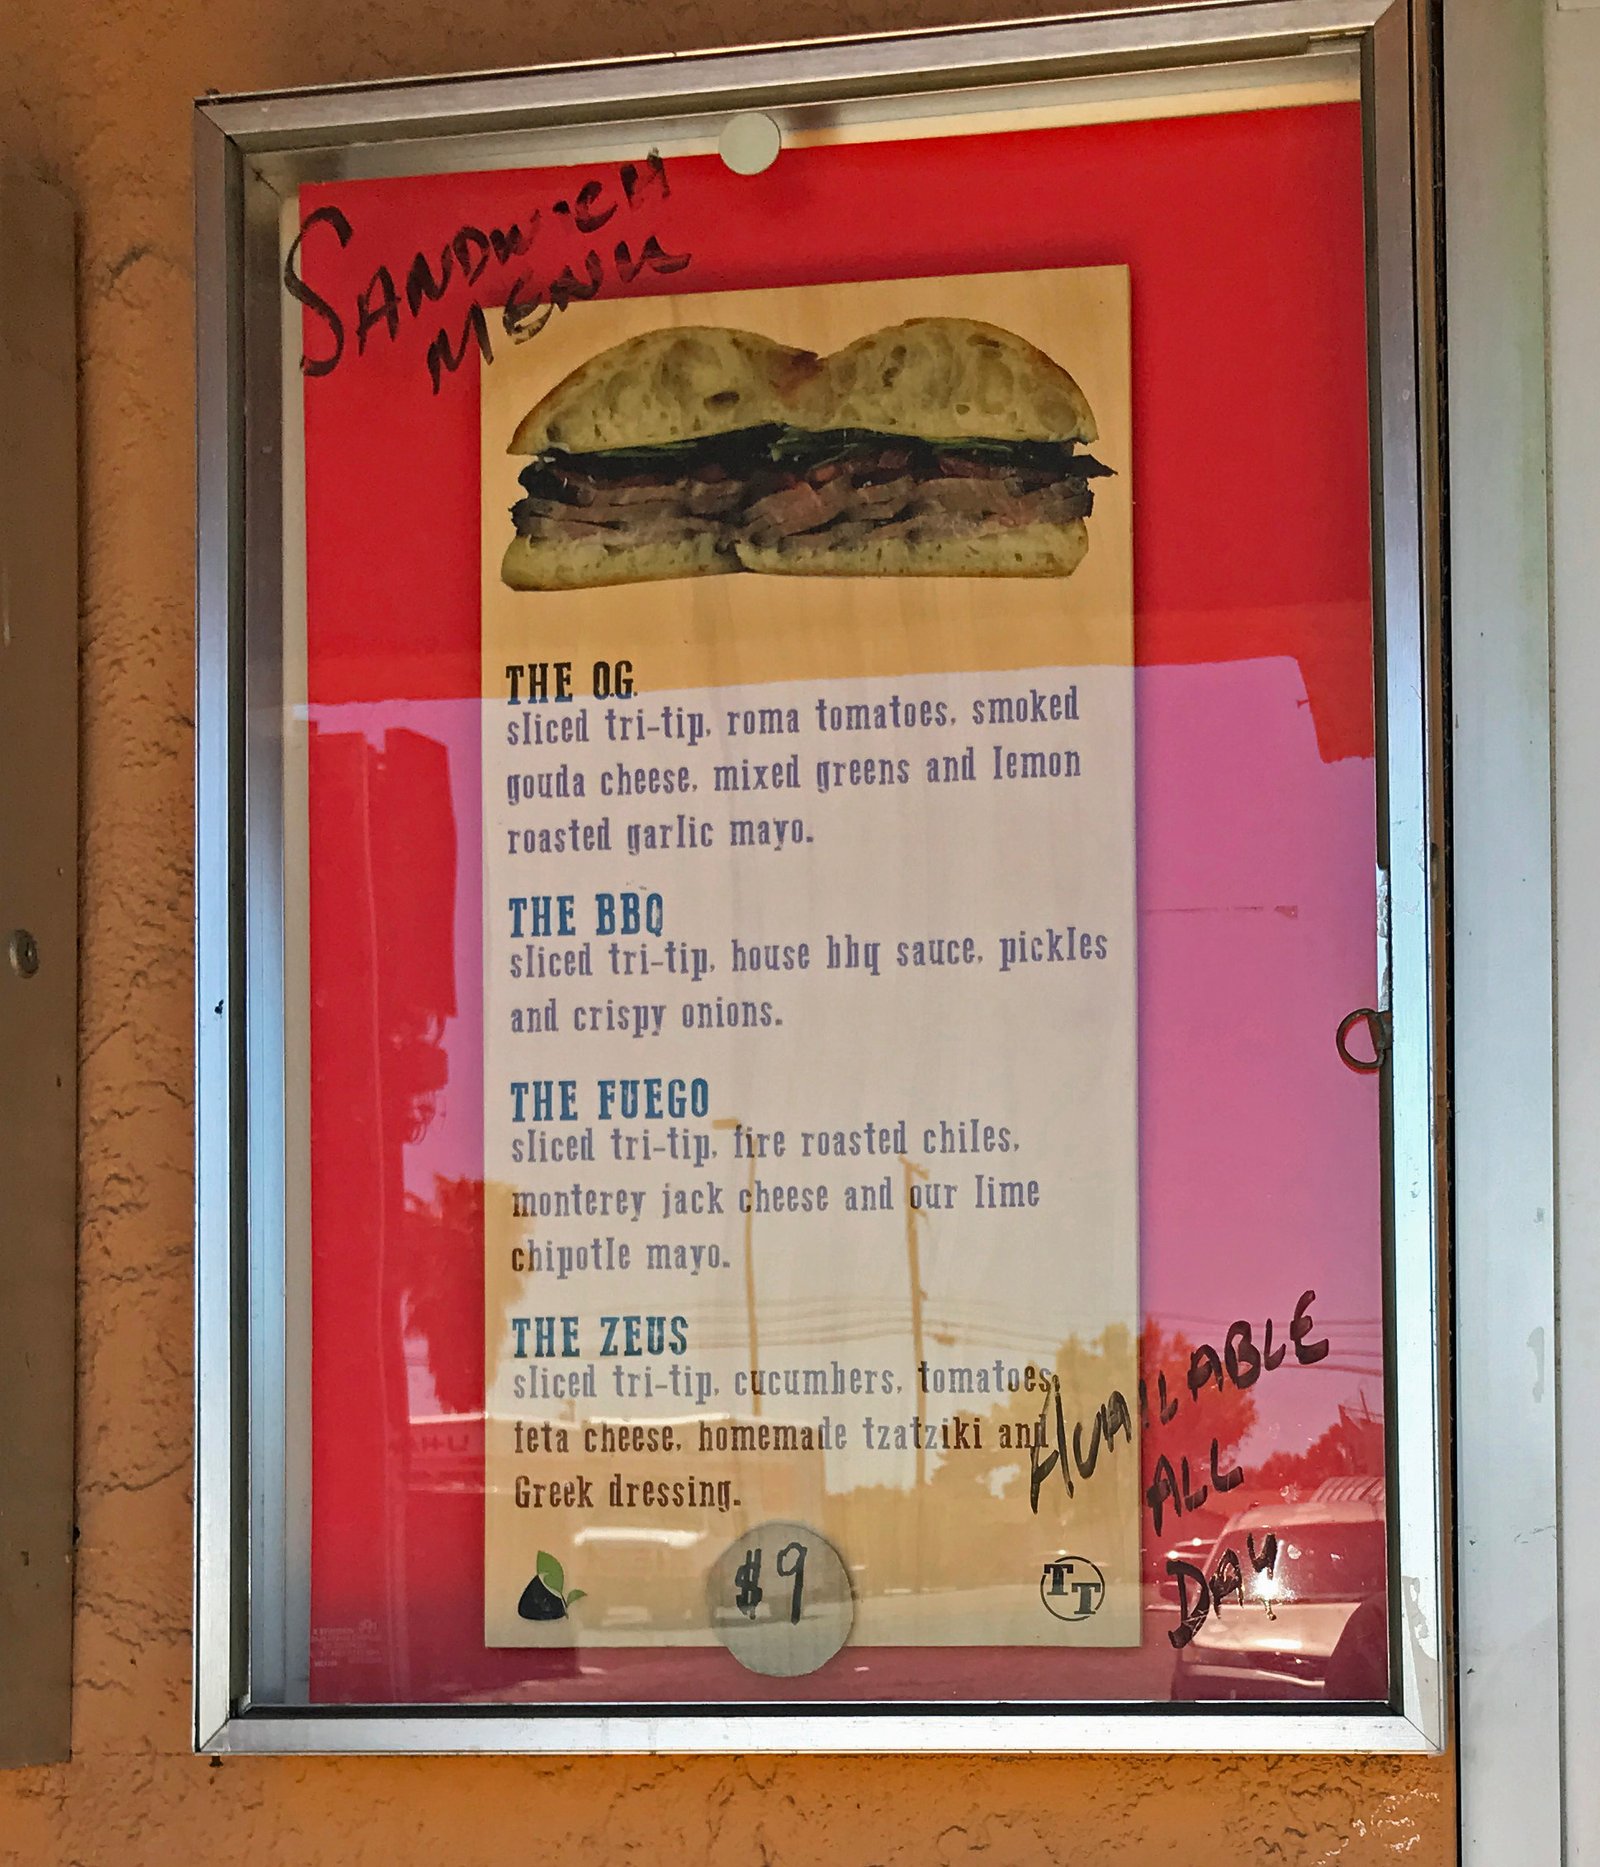 SANDWiCH
MENU
THE O.G.
sliced tri-tip, roma tomatoes, smoked
gouda cheese, mixed greens and lemon
roasted garlic mayo.
THE BBQ
sliced tri-tip, house bbq sauce, pickles
and crispy onions.
THE FUEGO
sliced tri-tip, fire roasted chiles,
monterey jack cheese and our lime
chipotle mayo.
THE ZEUS
sliced tri-tip, cucumbers, tomatoes,
feta cheese, homemade tzatziki and
Greek dressing.
AVAiLABLE
ALL
DAY
$9
TT